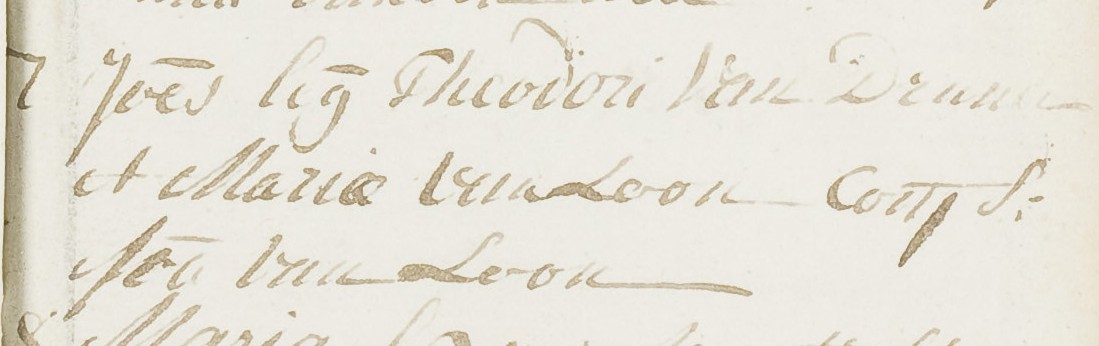 7 Joēs leg̅ Theodori Van Drunen
et Maria Van Loon Comp S:
Joā Van Loon
8 Maria